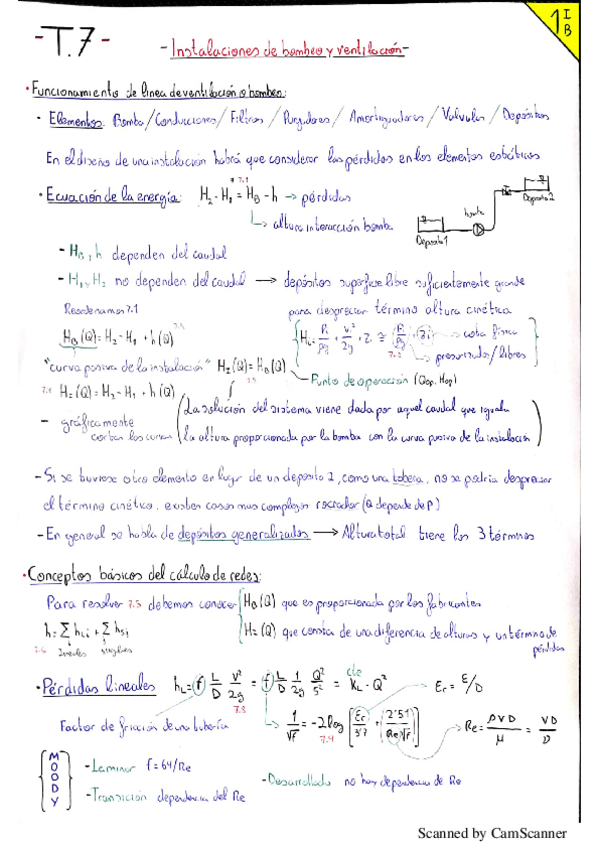 - T.7 -
- Instalaciones de bombeo y ventilación -
1 I B
· Funcionamiento de linea de ventilación o bombeo:
· Elementos: Bomba / Conducciones / Filtros / Purgadores / Amortiguadores / Valvulas / Depósitos
En el diseño de una instalación habrá que considerar las pérdidas en los elementos estáticos
· Ecuación de la energía: H₂ - H₁ = H_B - h → pérdidas
7.1
↳ altura interacción bomba
bomba
Deposito 1
Deposito 2
- H_B, h dependen del caudal
- H₁, H₂ no dependen del caudal → depósitos superficie libre suficientemente grande
para despreciar término altura cinética
Reordenamos 7.1
H_B (Q) = H₂ - H₁ + h(Q)
cota física
presurizados / libres
7.2
"curva pasiva de la instalación" H_z(Q) = H_B(Q)
7.5
Punto de operación (Qop, Hop)
7.4 H_z(Q) = H₂ - H₁ + h(Q)
- gráficamente
cortan las curvas
(La solución del sistema viene dada por aquel caudal que iguala
la altura proporcionada por la bomba con la curva pasiva de la instalación)
- Si se tuviese otro elemento en lugar de un deposito 2, como una tobera, no se podría despreciar
el término cinético, existen casos mas complejos (Q depende de P)
- En general se habla de depósitos generalizados → Altura total tiene los 3 términos
· Conceptos básicos del cálculo de redes:
Para resolver 7.5 debemos conocer
H_B (Q) que es proporcionada por los fabricantes
H_z (Q) que consta de una diferencia de alturas y un término de
pérdidas
h = Σ h_Li + Σ h_si
7.6 lineales singulares
· Pérdidas lineales h_L = f L/D V²/2g = f L/D 1/2g Q²/S² = K_L · Q²
cte
Er = E/D
7.8
Factor de fricción de una tubería
1/√f = -2 log [Er/3'7 + 2'51/(Re √f)]
7.9
Re = ρVD/μ = VD/ν
MOODY
- Laminar f = 64/Re
- Desarrollado no hay dependencia de Re
- Transición dependencia del Re
Scanned by CamScanner